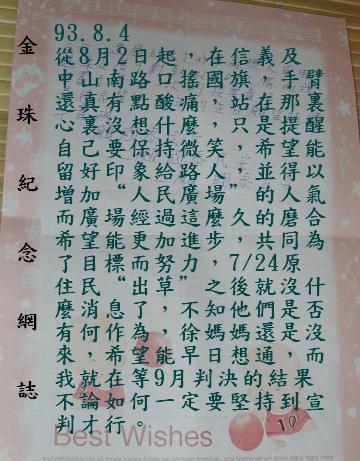 93.8.4
從8月2日起，在信義及
中山南路口搖國旗，手臂
還真有點痛，站在那裏
心裏想沒什麼，只是提醒
自己要保持微笑，希望能
留好印象給路人，並得以
增加“人民廣場”的人氣
而廣場經過這麼久的磨合
希望能更加進步，共同為
了目標而努力，7/24原
住民“出草”之後就沒什
麼消息了，不知他們是否
有何作為，徐媽媽還沒
來，希望能早日想通，而
我就在等9月判決的結果
不論如何一定要堅持到宣
判才行。
金珠紀念網誌
Best Wishes
10